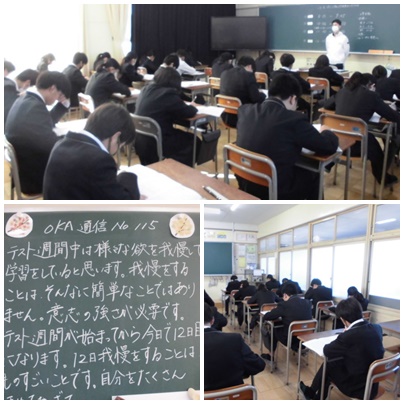 OKA通信 No 115
テスト週間中は様々な欲を我慢して
学習をしていると思います。我慢をする
ことは、そんなに簡単なことではあり
ません。意志の強さが必要です。
テスト週間が始まってから今日で12日目
になります。12日我慢をすることは
ものすごいことです。自分をたくさん